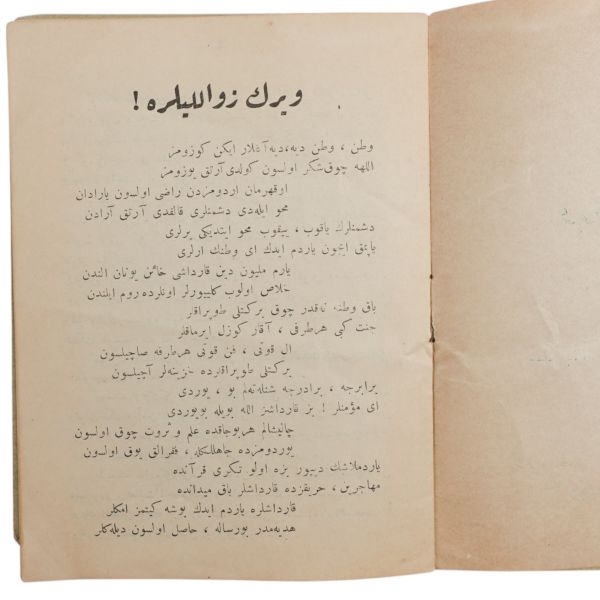 ويرك زوالليلره !
وطن ، وطن ديه،ديه آغلار ايكن كوزومز
اللهه چوق شكر اولسون كولدى آرتق يوزومز
او قهرمان اردومزدن راضى اولسون يارادان
محو ايله دى دشمنلرى قالقدى آرتق آرادن
دشمنلرك ياقوب ، ييقوب محو ايتديكى يرلرى
ياپمق ايچون ياردم ايدك اى وطنك ارلرى
يارم مليون دين قارداشى خائن يونان الندن
خلاص اولوب كلييورلر اونلرده روم ايلندن
باق وطنه نه قدر چوق بركتلى طوپراقلر
جنت كبى هر طرفى ، آقار كوزل ايرماقلر
ال قوتى ، فن قوتى هر طرفه صاچيلسون
بركتلى طوپراقلرده خزينه لر آچيلسون
برابرجه ، برادرجه شنله نه لم بو ، يوردى
اى مؤمنلر ! بز قارداشز الله بويله بويوردى
چاليشالم هر بوجاقده علم و ثروت چوق اولسون
يوردومزده جاهللكله ، فقرالق يوق اولسون
ياردملاشك دييور بزه اولو تكرى قرآنده
مهاجرين ، حريقزده قارداشلر باق ميدانده
قارداشلره ياردم ايدك بوشه كيتمز امكلر
هديه مدر بو رساله ، حاصل اولسون ديله كلر